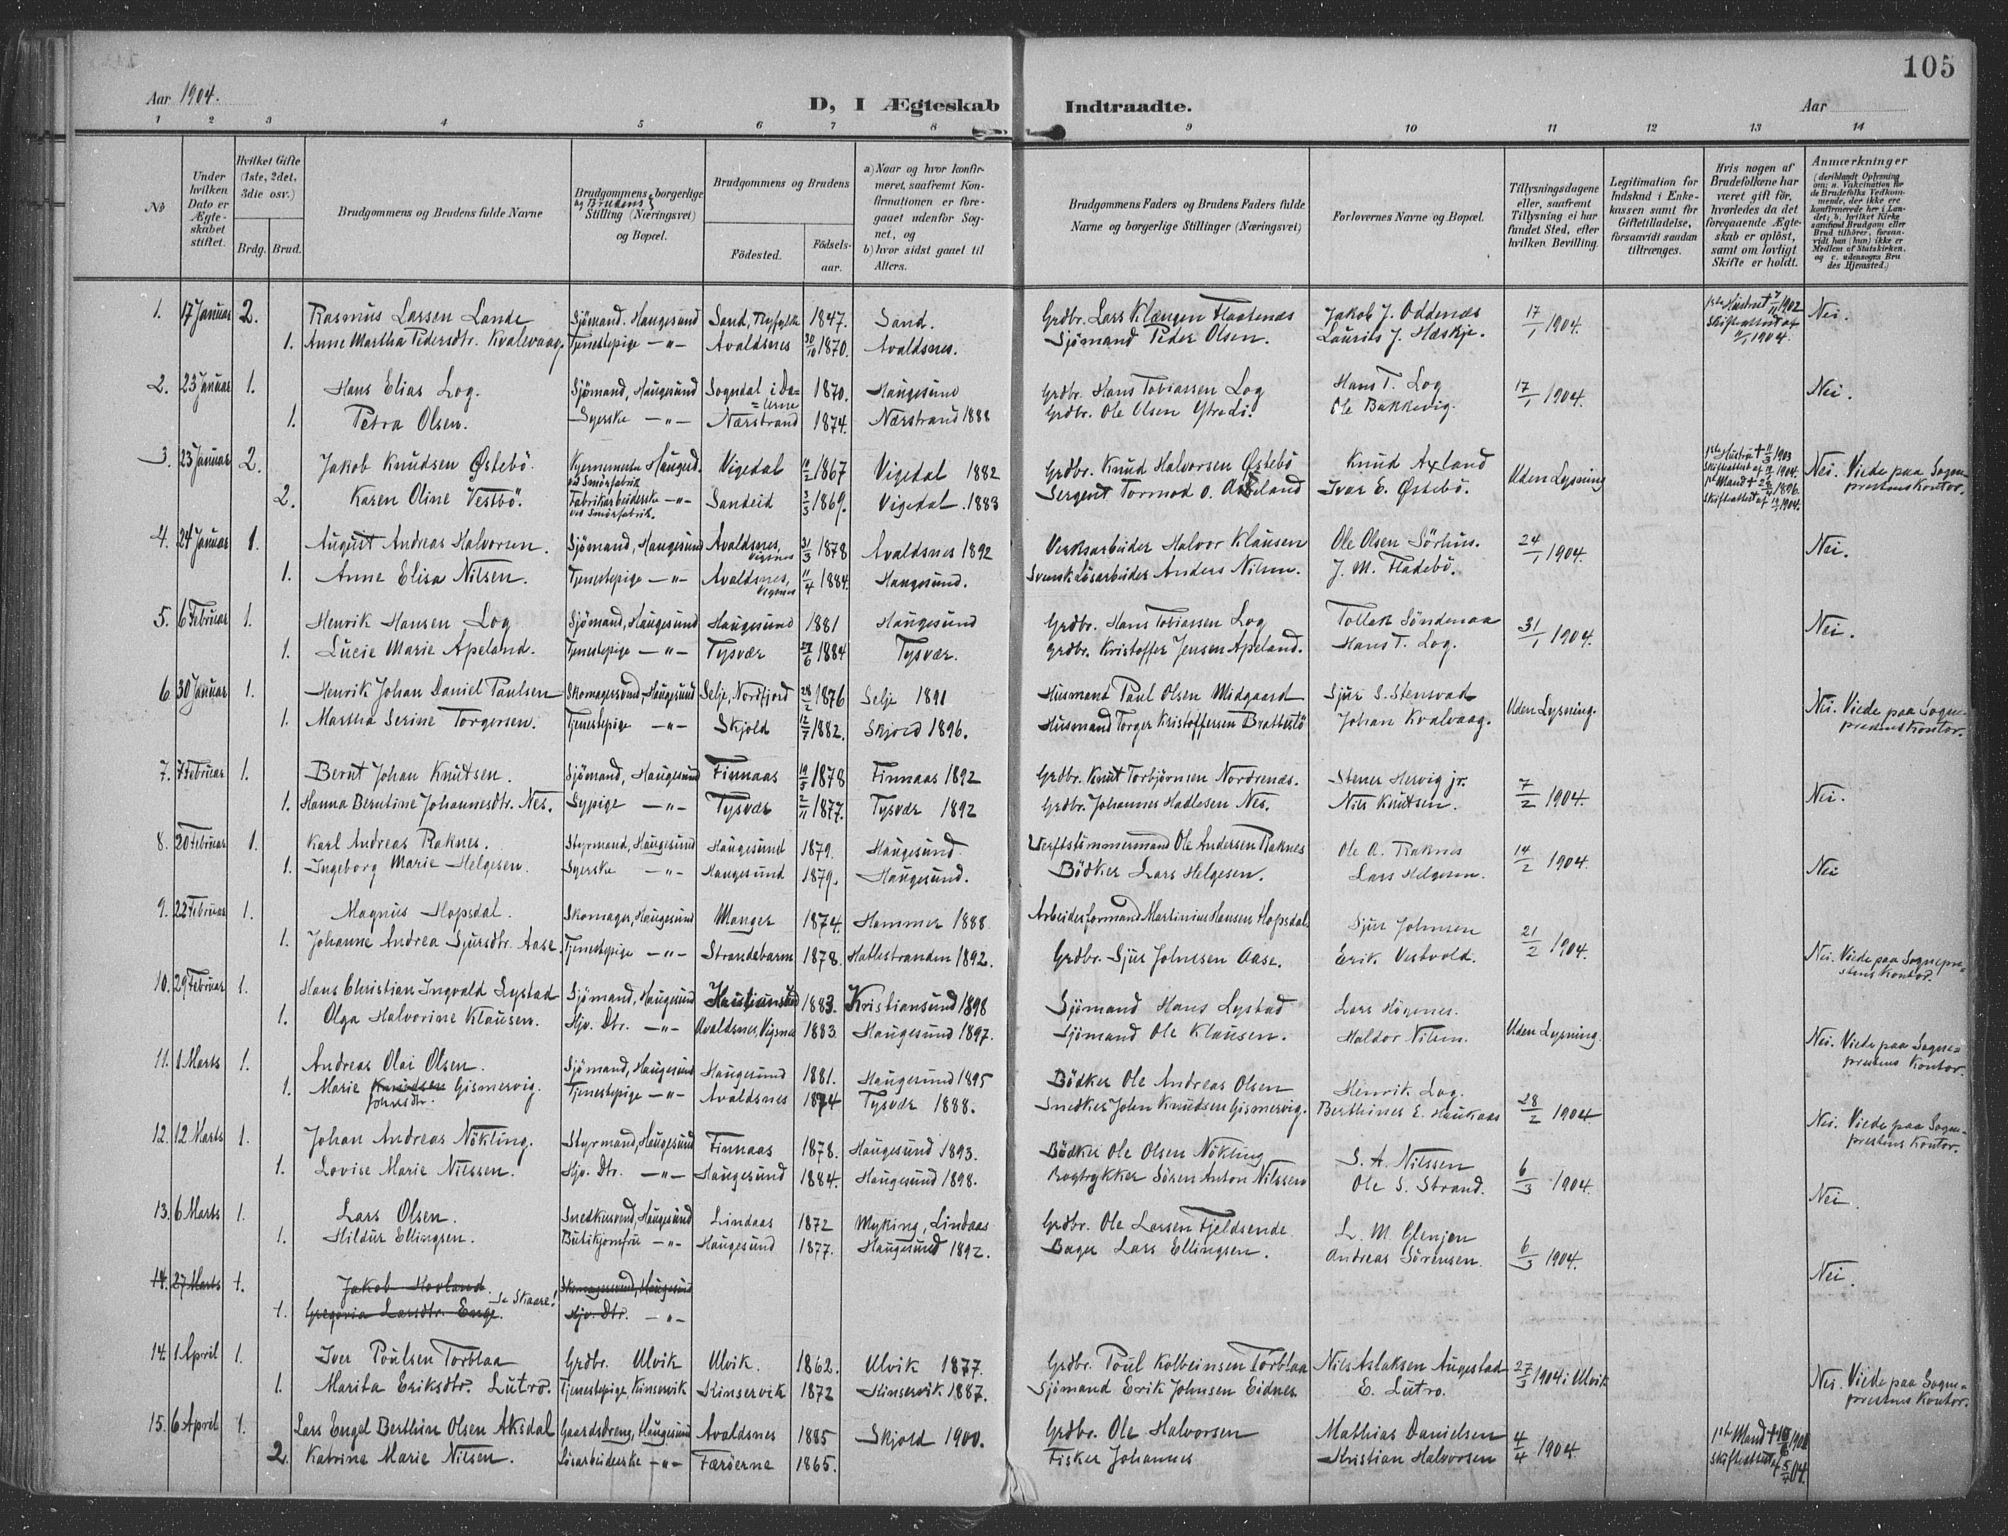 105
Aar 1904. D, I Ægteskab Indtraadte. Aar
1 2 3 4 5 6 7 8 9 10 11 12 13 14
No
Under hvilken Dato er Ægteskabet stiftet.
Hvilket Gifte (1ste, 2det, 3die osv.)
Brdg. Brud.
Brudgommens og Brudens fulde Navne
Brudgommens og Brudens borgerlige Stilling (Næringsvei) og Bopæl.
Brudgommens og Brudens
Födested. Födsels-aar.
a) Naar og hvor konfirmeret, saafremt Konfirmationen er foregaaet udenfor Sognet, og b) hvor sidst gaaet til Alters.
Brudgommens Faders og Brudens Faders fulde Navne og borgerlige Stillinger (Næringsvei)
Forlovernes Navne og Bopæl.
Tillysningsdagene eller, saafremt Tillysning ei har fundet Sted, efter hvilken Bevilling.
Legitimation for Indskud i Enkekassen samt for Giftetilladelse, forsaavidt saadan tiltrænges.
Hvis nogen af Brudefolkene har været gift för, hvorledes da det foregaaende Ægteskab er oplöst, samt om lovligt Skifte er holdt.
Anmærkninger
1. 17 Januar 2. Rasmus Larsen Lande Sjømand. Haugesund Sand, Ryfylke 1847. Sand. Grdbr. Lars Klængen Flaatenæs Jakob J. Oddenæs 17/1 1904. 1ste Hustru † 7/11 1902 Skifteattest af 11/1 1904. Nei.
1. Anne Martha Pedersdtr. Kvalevaag Tjenestepige -"- Avaldsnes 30/10 1870. Avaldsnes. Sjømand Peder Olsen. Laurits J. Hæskje.
2. 23 Januar 1. Hans Elias Log. Sjømand, Haugesund Sogndal i Dalerne 1870. Haugesund Grdbr. Hans Tobiassen Log Hans T. Log 17/1 1904. Nei.
1. Petra Olsen. Syerske -"- Nærstrand 1874. Nærstrand 1888 Grdbr. Ole Olsen Ytredi. Ole Bakkevig.
3. 23 Januar 2. Jakob Knudsen Østebö. ved Smörfabrik Vigedal 1867 Vigedal 1882 Grdbr. Knud Halvorsen Østebö Knud Axland Uden Lysning Nei. Viede paa Sogneprestens Kontor.
2. Karen Oline Vestbö. Fabrikarbeiderske -"- ved Smörfabrik. Sandeid 3/3 1869. Vigedal. 1883 Sergent Tormod O. Ivar E. Østebö.
4. 24 Januar 1. August Andreas Halvorsen. Sjømand, Haugesund Avaldsnes, Vigsnes 31/3 1878 Avaldsnes 1892 Verksarbeider Halvor Klausen Ole Olsen Sörhus. 24/1 1904. Nei.
1. Anne Elisa Nilsen. Tjenestepige -"- Avaldsnes, Vigsnes 11/4 1884. Haugesund. Svensk Lösarbeider Anders Nilsen. J. M. Fladebö.
5. 6 Februar 1. Henrik Hansen Log Sjømand, Haugesund Haugesund 1881 Haugesund Grdbr. Hans Tobiassen Log Tollak Söndenaa 31/1 1904. Nei.
1. Lucie Marie Apeland. Tjenestepige -"- Tysvær 27/6 1884 Tysvær. Grdbr. Kristoffer Jensen Apeland. Hans T. Log.
6 30 Januar 1. Henrik Johan Daniel Paulsen Skomagersvend, Haugesund Selje, Nordfjord 28/2 1876 Selje 1891 Husmand Paul Olsen Midgaard Sjur S. Stensvad Uden Lysning. Nei. Viede paa Sogneprestens Kontor.
1. Martha Serine Torgersen. Tjenestepige -"- Skjold 12/7 1882. Skjold 1896. Husmand Torger Kristoffersen Brattestö Johan Kvalvaag.
7. 7 Februar 1. Bernt Johan Knutsen. Sjømand, Haugesund Finnaas 19/5 1878 Finnaas 1892 Grdbr. Knut Torbjörnsen Nordrenæs. Stener Hervig jr. 7/2 1904. Nei.
1. Hanna Bertine Johannesdtr. Nes. Sypige -"- Tysvær 2/11 1877. Tysvær 1892 Grdbr. Johannes Hadlesen Nes. Nils Knutsen.
8. 20 Februar 1. Karl Andreas Raknes. Styrmand, Haugesund Haugesund 1879. Haugesund. Verftstömmermand Ole Andersen Raknes Ole A. Raknes 14/2 1904. Nei
1. Ingeborg Marie Helgesen. Syerske -"- Haugesund 1879. Haugesund. Bödker Lars Helgesen. Lars Helgesen.
9. 22 Februar 1. Magnus Hopsdal. Skomager, Haugesund Manger 1874. Hammer 1888. Arbeidsformand Martinius Hansen Hopsdal Sjur Johnsen 21/2 1904. Nei. Viede paa Sogneprestens Kontor.
1. Johanne Andrea Sjursdtr. Aase. Tjenestepige -"- Strandebarm 1878. Hatlestranden 1892. Grdbr. Sjur Johnsen Aase. Erik Vestvold.
10. 29 Februar 1. Hans Christian Ingvald Lystad Sjømand, Haugesund Kristiansund 1883. Kristiansund 1898 Sjömand Hans Lystad Lars Högenes. Uden Lysning. Nei. Viede paa Sogneprestens Kontor.
1. Olga Halvorine Klausen. Hjv. Dtr. -"- Avaldsnes, Vigsnes 1883. Haugesund 1897. Sjömand Ole Klausen. Haldor Nilsen.
11. 8 Marts 1. Andreas Olai Olsen. Sjømand, Haugesund Haugesund 1881. Haugesund 1895 Bödker Ole Andreas Olsen Henrik Log. 28/2 1904 Nei. Viede paa Sogneprestens Kontor.
1. Marie Knudsen Johnsdtr. Gismervig. Tjenestepige -"- Avaldsnes 1874 Tysvær 1888. Snedker John Knudsen Gismervig. Berthines E. Haukaas
12. 12 Marts 1. Johan Andreas Nökling. Styrmand, Haugesund Finnaas 1878. Haugesund 1893. Bödker Ole Olsen Nökling S. A. Nilssen 6/3 1904. Nei.
1. Lovise Marie Nilssen. Hjv. Dtr. -"- Haugesund 1884. Haugesund 1898. Bogtrykker Sören Anton Nilssen Ole S. Strand.
13. 6 Marts 1. Lars Olsen. Snedkersvend, Haugesund Lindaas 1872 Myking, Lindaas Grdbr. Ole Larsen Fjeldsende L. M. Glenjen 6/3 1904. Nei.
1. Hildur Ellingsen. Butikjomfru -"- Haugesund 1877. Haugesund 1892. Bager Lars Ellingsen. Andreas Sörensen.
14. 27 Marts 1. Jakob Hovland Skomagersvend, Haugesund
1. Gregoria Larsdtr. Enge. Se Skaare! Hjv. Dtr. -"-
14. 1 April 1. Iver Poulsen Torblaa Grdbr. Ulvik Ulvik. 1862. Ulvik 1877. Grdbr. Poul Kolbeinsen Torblaa Nils Aslaksen Augestad 27/3 1904 i Ulvik Nei. Viede paa Sogneprestens Kontor.
1. Marita Eriksdtr. Lutro. Tjenestepige Kinservik Kinservik 1872 Kinservik 1887. Sjømand Erik Johnsen Eidnes E. Lutro.
15. 6 April 1. Lars Engel Berthin Olsen Aksdal Gaardsdreng, Haugesund Avaldsnes 1885 Skjold 1900. Grdbr. Ole Halvorsen Mathias Danielsen 4/4 1904. 1ste Mand †
2. Katrine Marie Nilsen. Lösarbeiderske -"- Færöerne 1865. Fisker Johannes Kristian Halvorsen